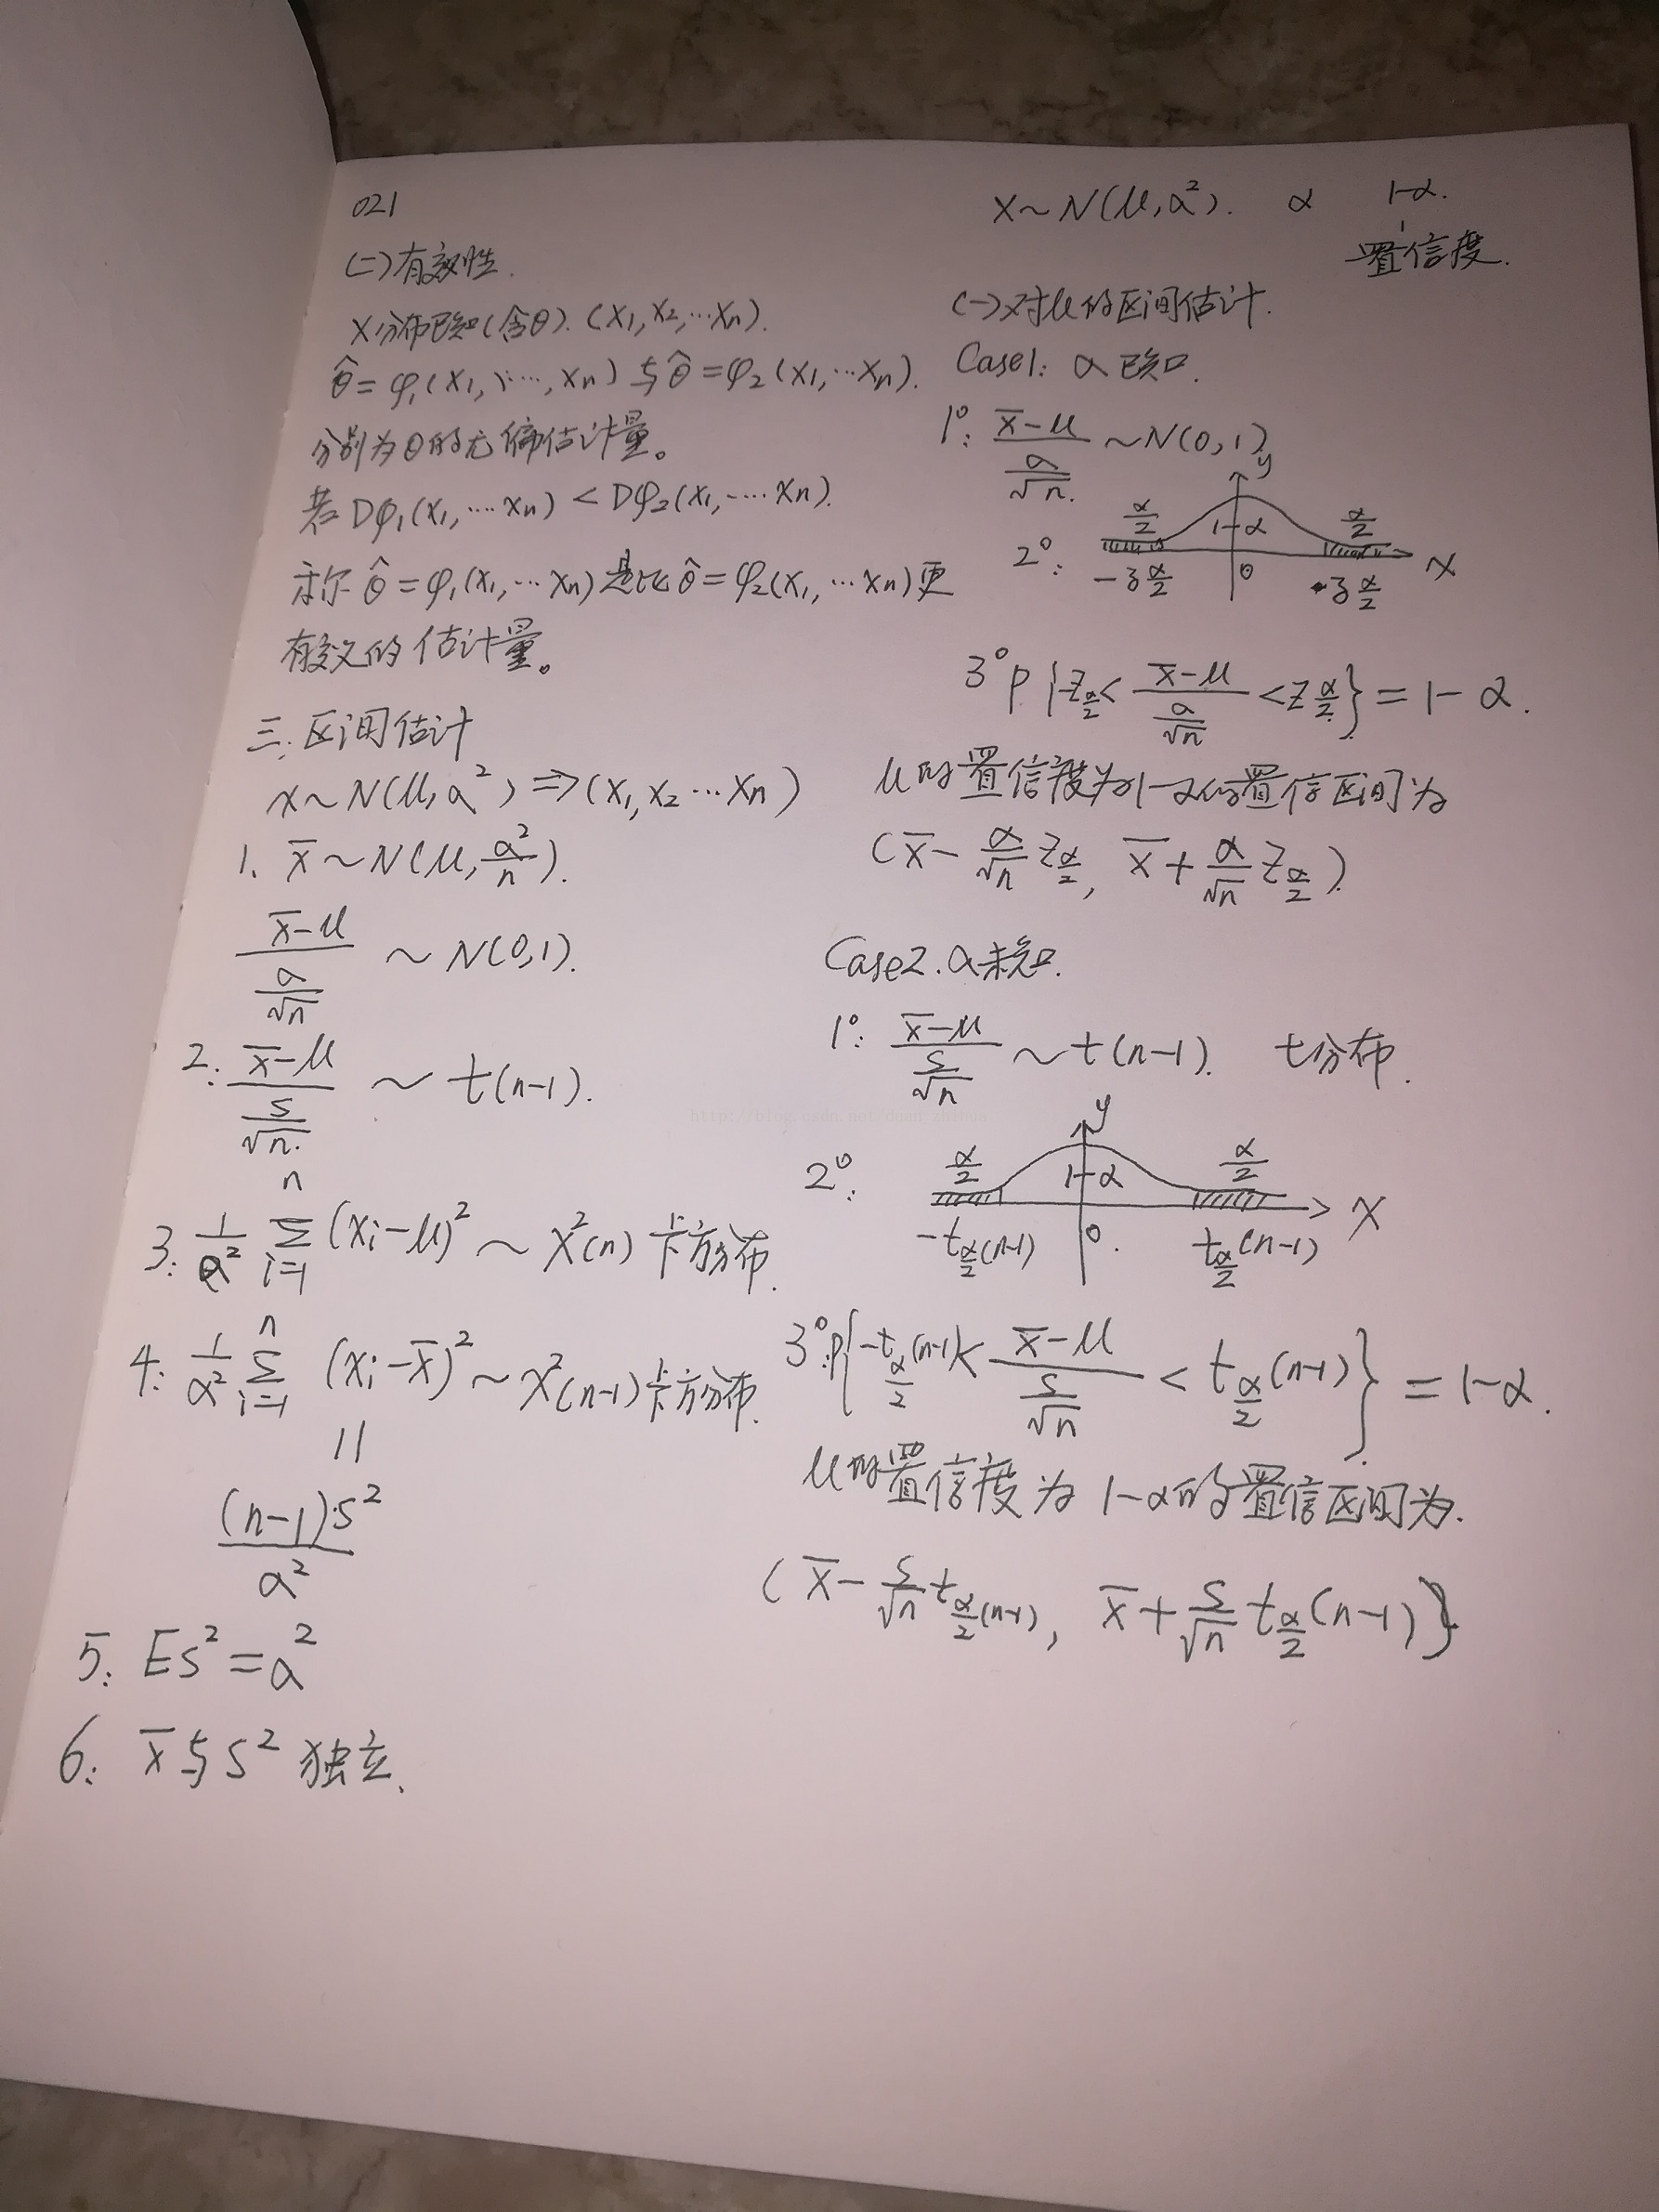 021
(二)有效性.
X分布已知(含θ). (X₁,X₂,…Xn).
θ̂=φ₁(X₁,…,Xn)与θ̂=φ₂(X₁,…Xn).
分别为θ的无偏估计量。
若Dφ₁(X₁,…Xn)<Dφ₂(X₁,…Xn).
称θ̂=φ₁(X₁,…Xn)是比θ̂=φ₂(X₁,…Xn)更
有效的估计量。
三.区间估计
X~N(μ,α²)⇒(X₁,X₂…Xn)
1. x̄~N(μ,α²/n).
(x̄-μ)/(α/√n) ~ N(0,1).
2: (x̄-μ)/(s/√n) ~ t(n-1).
3: 1/α² Σ(i=1..n) (xi-μ)² ~ χ²(n) 卡方分布.
4: 1/α² Σ(i=1..n) (xi-x̄)² ~ χ²(n-1) 卡方分布.
||
(n-1)·s²/α²
5: Es²=α²
6: x̄与s²独立.
X~N(μ,α²). α 1-α.
置信度.
(一)对μ的区间估计.
Case1: α已知.
1°: (x̄-μ)/(α/√n) ~N(0,1)
y
α/2 1-α α/2
2°: -z α/2 0 z α/2 x
3° P{-z α/2 < (x̄-μ)/(α/√n) < z α/2} = 1-α.
μ的置信度为1-α的置信区间为
(x̄ - α/√n z α/2, x̄ + α/√n z α/2).
Case2. α未知.
1°: (x̄-μ)/(s/√n) ~ t(n-1). t分布.
y
2°: α/2 1-α α/2 x
-t α/2 (n-1) 0. t α/2 (n-1)
3°: P{-t α/2 (n-1) < (x̄-μ)/(s/√n) < t α/2 (n-1)} = 1-α.
μ的置信度为1-α的置信区间为.
(x̄ - s/√n t α/2 (n-1), x̄ + s/√n t α/2 (n-1))